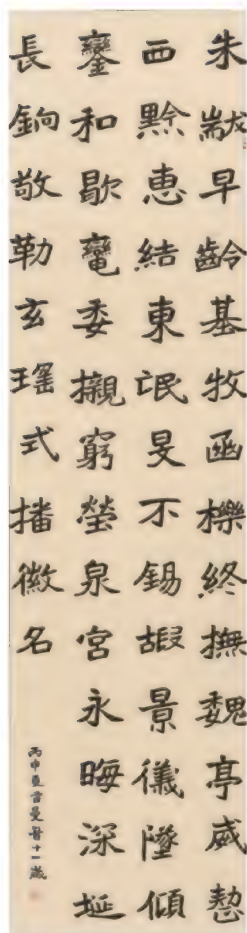 朱黻早齡基牧函櫟終撫魏亭威慹
西黔惠結東氓旻不錫嘏景儀墜傾
鑾和歇委櫬窮塋泉宮永晦深埏
長銄敬勒玄瑤式播徽名
丙申夏雷曼十一歲